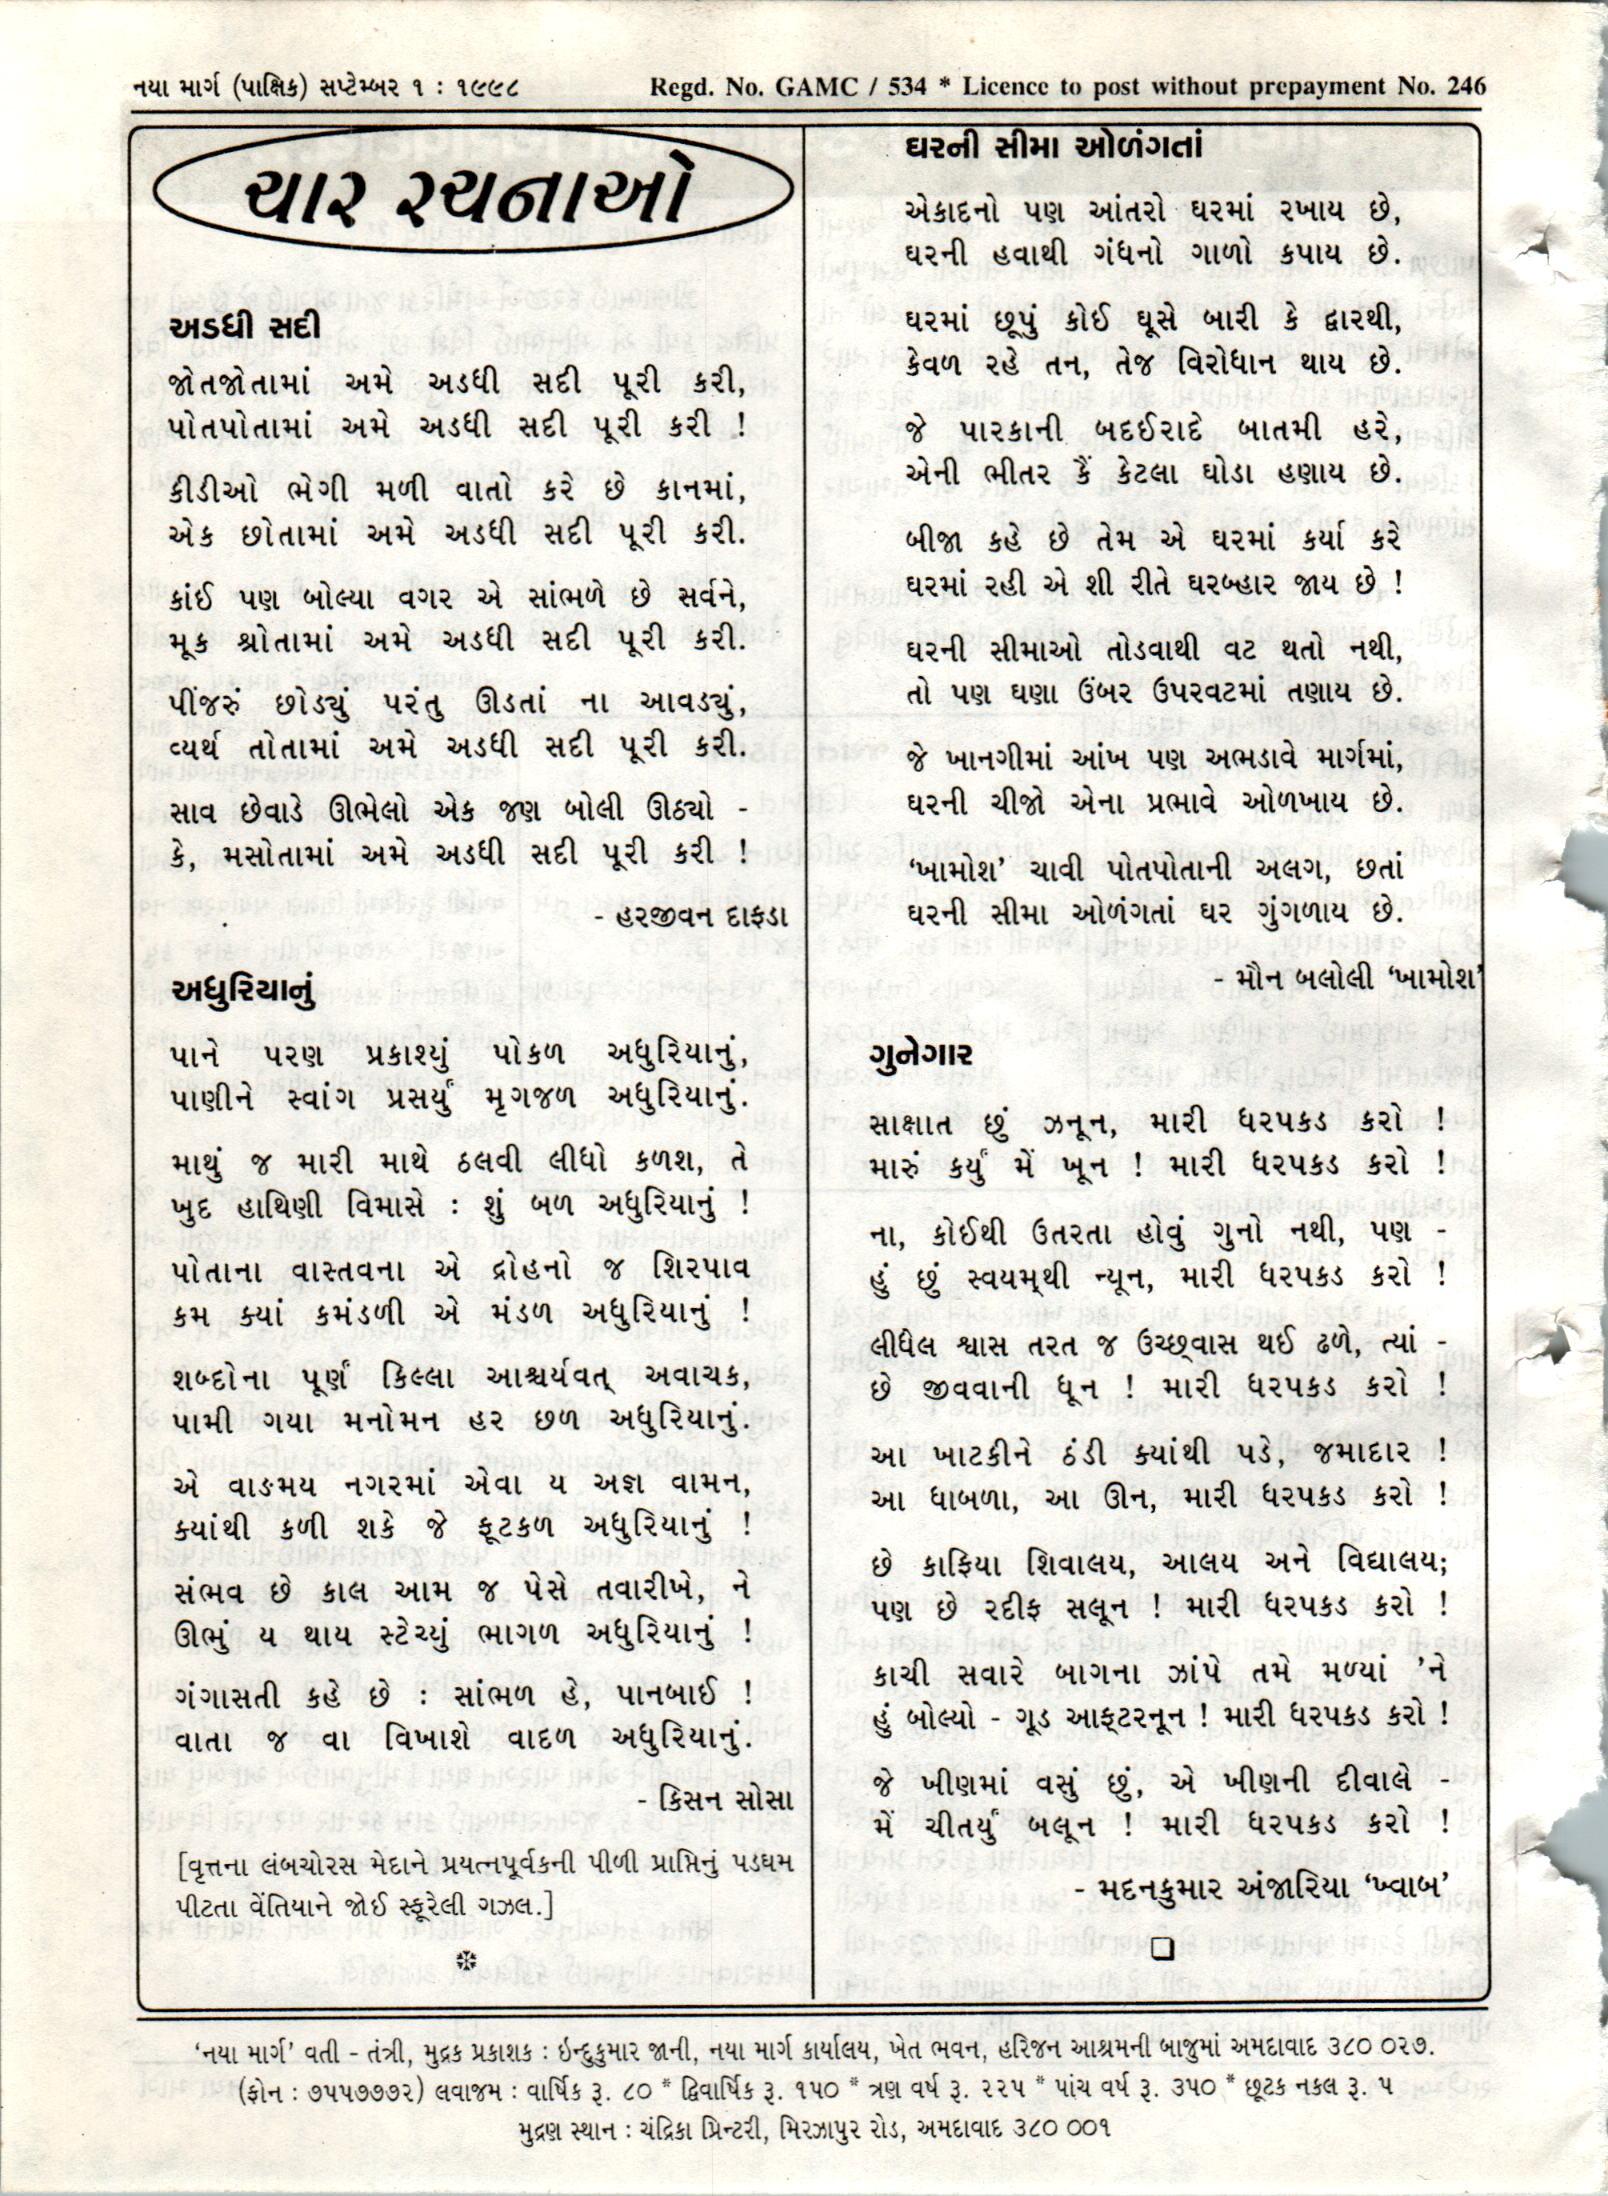 નયા માર્ગ (પાક્ષિક) સપ્ટેમ્બર ૧ : ૧૯૯૮
Regd. No. GAMC / 534 * Licence to post without prepayment No. 246
ચાર રચનાઓ
અડધી સદી
જોતજોતામાં અમે અડધી સદી પૂરી કરી,
પોતપોતામાં અમે અડધી સદી પૂરી કરી !
કીડીઓ ભેગી મળી વાતો કરે છે કાનમાં,
એક છોતામાં અમે અડધી સદી પૂરી કરી.
કાંઈ પણ બોલ્યા વગર એ સાંભળે છે સર્વને,
મૂક શ્રોતામાં અમે અડધી સદી પૂરી કરી.
પીંજરું છોડ્યું પરંતુ ઊડતાં ના આવડ્યું,
વ્યર્થ તોતામાં અમે અડધી સદી પૂરી કરી.
સાવ છેવાડે ઊભેલો એક જણ બોલી ઊઠ્યો -
કે, મસોતામાં અમે અડધી સદી પૂરી કરી !
- હરજીવન દાફડા
અધુરિયાનું
પાને પરણ પ્રકાશ્યું પોકળ અધુરિયાનું,
પાણીને સ્વાંગ પ્રસર્યું મૃગજળ અધુરિયાનું.
માથું જ મારી માથે ઠલવી લીધો કળશ, તે
ખુદ હાથિણી વિમાસે : શું બળ અધુરિયાનું !
પોતાના વાસ્તવના એ દ્રોહનો જ શિરપાવ
કમ ક્યાં કમંડળી એ મંડળ અધુરિયાનું !
શબ્દોના પૂર્ણ કિલ્લા આશ્ચર્યવત્ અવાચક,
પામી ગયા મનોમન હર છળ અધુરિયાનું.
એ વાઙમય નગરમાં એવા ય અજ્ઞ વામન,
ક્યાંથી કળી શકે જે ફૂટકળ અધુરિયાનું !
સંભવ છે કાલ આમ જ પેસે તવારીખે, ને
ઊભું ય થાય સ્ટેચ્યું ભાગળ અધુરિયાનું !
ગંગાસતી કહે છે : સાંભળ હે, પાનબાઈ !
વાતા જ વા વિખાશે વાદળ અધુરિયાનું.
- કિસન સોસા
[વૃત્તના લંબચોરસ મેદાને પ્રયત્નપૂર્વકની પીળી પ્રાપ્તિનું પડઘમ
પીટતા વેંતિયાને જોઈ સ્ફૂરેલી ગઝલ.]
ઘરની સીમા ઓળંગતાં
એકાદનો પણ આંતરો ઘરમાં રખાય છે,
ઘરની હવાથી ગંધનો ગાળો કપાય છે.
ઘરમાં છૂપું કોઈ ઘૂસે બારી કે દ્વારથી,
કેવળ રહે તન, તેજ વિરોધાન થાય છે.
જે પારકાની બદઈરાદે બાતમી હરે,
એની ભીતર કૈં કેટલા ઘોડા હણાય છે.
બીજા કહે છે તેમ એ ઘરમાં કર્યા કરે
ઘરમાં રહી એ શી રીતે ઘરબ્હાર જાય છે !
ઘરની સીમાઓ તોડવાથી વટ થતો નથી,
તો પણ ઘણા ઉંબર ઉપરવટમાં તણાય છે.
જે ખાનગીમાં આંખ પણ અભડાવે માર્ગમાં,
ઘરની ચીજો એના પ્રભાવે ઓળખાય છે.
‘ખામોશ’ ચાવી પોતપોતાની અલગ, છતાં
ઘરની સીમા ઓળંગતાં ઘર ગુંગળાય છે.
- મૌન બલોલી ‘ખામોશ’
ગુનેગાર
સાક્ષાત છું ઝનૂન, મારી ધરપકડ કરો !
મારું કર્યું મેં ખૂન ! મારી ધરપકડ કરો !
ના, કોઈથી ઉતરતા હોવું ગુનો નથી, પણ -
હું છું સ્વયમ્‌થી ન્યૂન, મારી ધરપકડ કરો !
લીધેલ શ્વાસ તરત જ ઉચ્છ્‌વાસ થઈ ઢળે, ત્યાં -
છે જીવવાની ધૂન ! મારી ધરપકડ કરો !
આ ખાટકીને ઠંડી ક્યાંથી પડે, જમાદાર !
આ ધાબળા, આ ઊન, મારી ધરપકડ કરો !
છે કાફિયા શિવાલય, આલય અને વિદ્યાલય;
પણ છે રદીફ સલૂન ! મારી ધરપકડ કરો !
કાચી સવારે બાગના ઝાંપે તમે મળ્યાં ’ને
હું બોલ્યો - ગૂડ આફ્ટરનૂન ! મારી ધરપકડ કરો !
જે ખીણમાં વસું છું, એ ખીણની દીવાલે -
મેં ચીતર્યું બલૂન ! મારી ધરપકડ કરો !
- મદનકુમાર અંજારિયા ‘ખ્વાબ’
‘નયા માર્ગ’ વતી - તંત્રી, મુદ્રક પ્રકાશક : ઇન્દુકુમાર જાની, નયા માર્ગ કાર્યાલય, ખેત ભવન, હરિજન આશ્રમની બાજુમાં અમદાવાદ ૩૮૦ ૦૨૭.
(ફોન : ૭૫૫૭૭૭૨) લવાજમ : વાર્ષિક રૂ. ૮૦ * દ્વિવાર્ષિક રૂ. ૧૫૦ * ત્રણ વર્ષ રૂ. ૨૨૫ * પાંચ વર્ષ રૂ. ૩૫૦ * છૂટક નકલ રૂ. ૫
મુદ્રણ સ્થાન : ચંદ્રિકા પ્રિન્ટરી, મિરઝાપુર રોડ, અમદાવાદ ૩૮૦ ૦૦૧